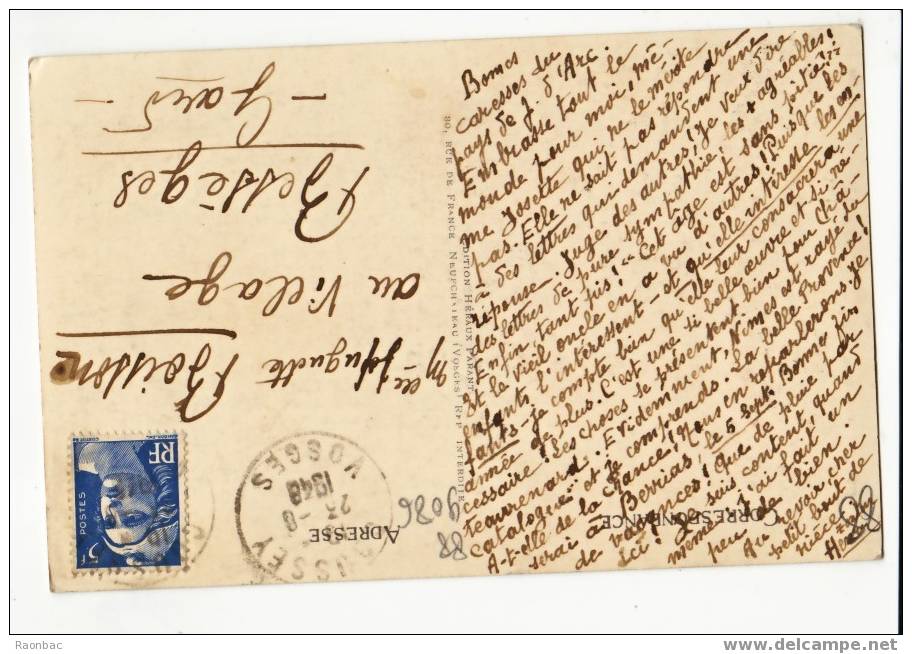 Bonnes
caresses du
pays de J. d'Arc.
Embrasse tout le
monde pour moi, mê-
me Josette qui ne le mérite
pas. Elle ne sait pas répondre
à des lettres qui demandent une
réponse. Juge des autres, je veux dire
des lettres de pure sympathie - les + agréables!
Enfin tant pis! - Cet âge est sans pitié!!
et le vieil oncle en a vu d'autres! Puisque les
enfants t'intéressent - et qu'elle intéresse les en-
fants - je compte bien qu'elle leur consacrera une
année de plus. C'est une si belle œuvre et si né-
cessaire! Les choses se présentent bien pour Châ-
teaurenard. Evidemment, Nîmes est rayé du
catalogue et je comprends. La belle Provence!
A-t-elle de la chance! Nous en reparlerons. Je
serai à Berrias, le 5 Sept. Bonne fin
de vacances! Que de pluie par
ici! Je suis content quand
même, j'ai fait un
peu de bien.
Au revoir cher
petit bout de
nièce.
CORRESPONDANCE
ADRESSE
EDITION HERAUX-PARANT
80, RUE DE FRANCE NEUFCHATEAU (VOSGES) REP. INTERDITE
Melle Huguette Boisson
au Village
Bessèges
- Gard -
VOSGES
1948
RF
POSTES
5F
9086
88
88
Raonbac
www.delcampe.net